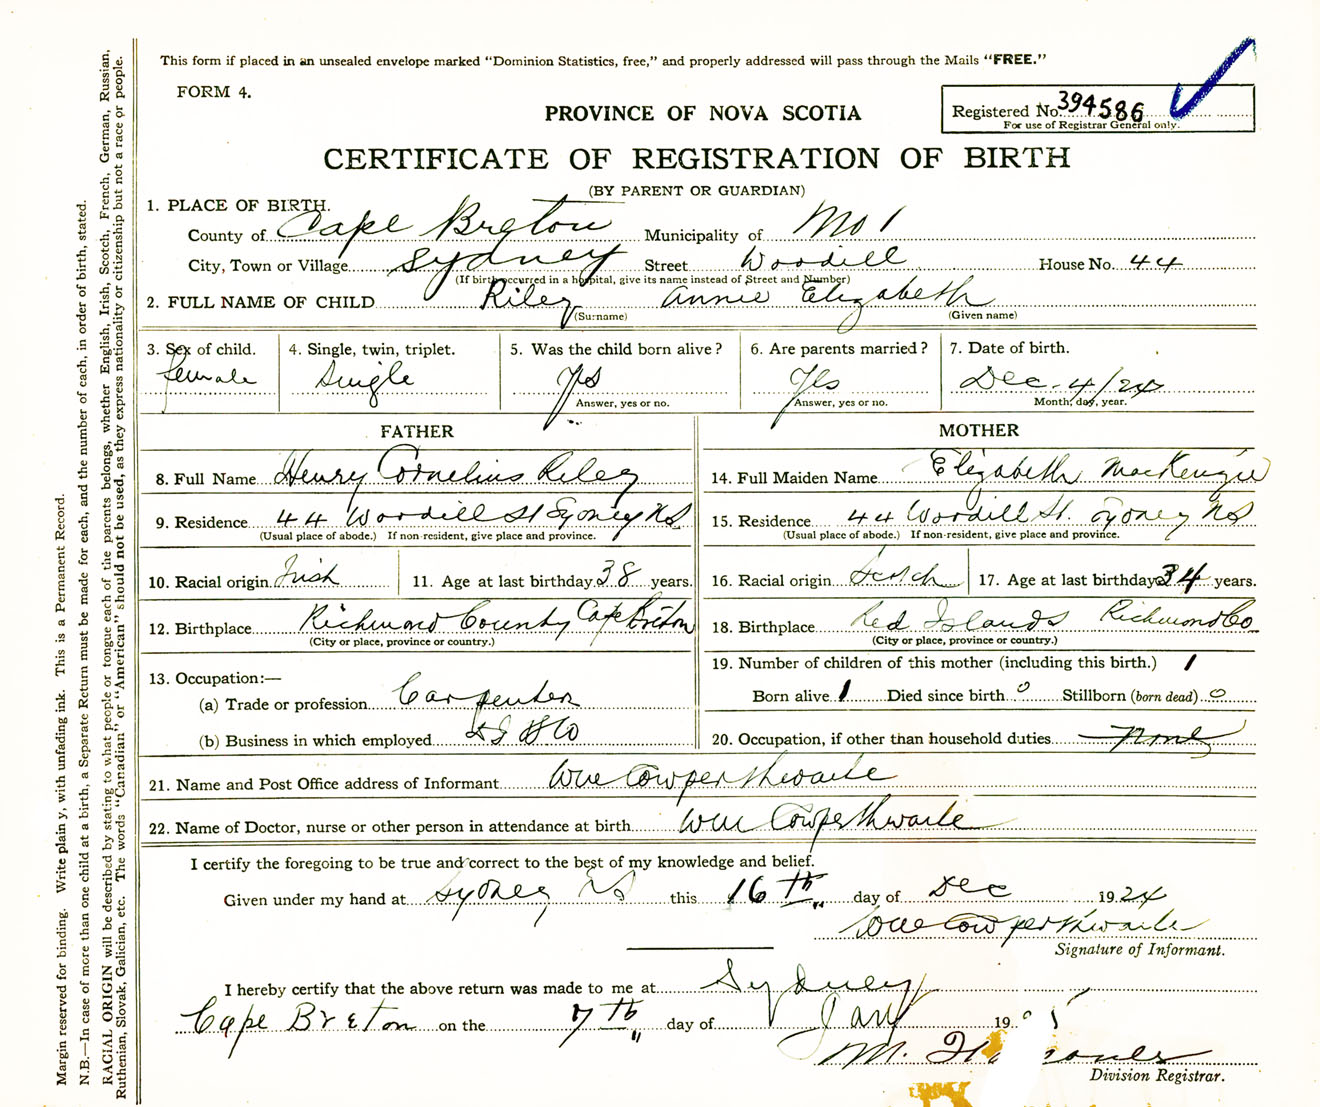 This form if placed in an unsealed envelope marked "Dominion Statistics, free," and properly addressed will pass through the Mails "FREE."
FORM 4.
PROVINCE OF NOVA SCOTIA
Registered No. 394586
For use of Registrar General only.
CERTIFICATE OF REGISTRATION OF BIRTH
(BY PARENT OR GUARDIAN)
1. PLACE OF BIRTH.
County of Cape Breton Municipality of No 1
City, Town or Village Sydney Street Woodill House No. 44
(If birth occurred in a hospital, give its name instead of Street and Number)
2. FULL NAME OF CHILD Riley Annie Elizabeth
(Surname) (Given name)
3. Sex of child. 4. Single, twin, triplet. 5. Was the child born alive? 6. Are parents married? 7. Date of birth.
female Single Yes Yes Dec. 4/24
Answer, yes or no. Answer, yes or no. Month, day, year.
FATHER MOTHER
8. Full Name Henry Cornelius Riley 14. Full Maiden Name Elizabeth MacKenzie
9. Residence 44 Woodill St Sydney NS 15. Residence 44 Woodill St. Sydney NS
(Usual place of abode.) If non-resident, give place and province. (Usual place of abode.) If non-resident, give place and province.
10. Racial origin Irish 11. Age at last birthday 38 years. 16. Racial origin Scotch 17. Age at last birthday 34 years.
12. Birthplace Richmond County Cape Breton 18. Birthplace Red Islands Richmond Co.
(City or place, province or country.) (City or place, province or country.)
13. Occupation:— 19. Number of children of this mother (including this birth.) 1
(a) Trade or profession Carpenter Born alive 1 Died since birth 0 Stillborn (born dead) 0
(b) Business in which employed 20. Occupation, if other than household duties None
21. Name and Post Office address of Informant Wm Cowperthwaite
22. Name of Doctor, nurse or other person in attendance at birth Wm Cowperthwaite
I certify the foregoing to be true and correct to the best of my knowledge and belief.
Given under my hand at Sydney NS this 16th day of Dec 1924
Wm Cowperthwaite
Signature of Informant.
I hereby certify that the above return was made to me at Sydney
Cape Breton on the 7th day of Jan 19 5
M.
Division Registrar.
Margin reserved for binding. Write plainly, with unfading ink. This is a Permanent Record.
N.B.—In case of more than one child at a birth, a Separate Return must be made for each, and the number of each, in order of birth, stated.
RACIAL ORIGIN will be described by stating to what people or tongue each of the parents belongs, whether English, Irish, Scotch, French, German, Russian,
Ruthenian, Slovak, Galician, etc. The words "Canadian" or "American" should not be used, as they express nationality or citizenship but not a race or people.